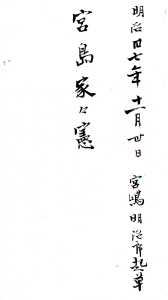 明治四七年十一月廿日 宮嶋明治郎起草
宮島家々憲